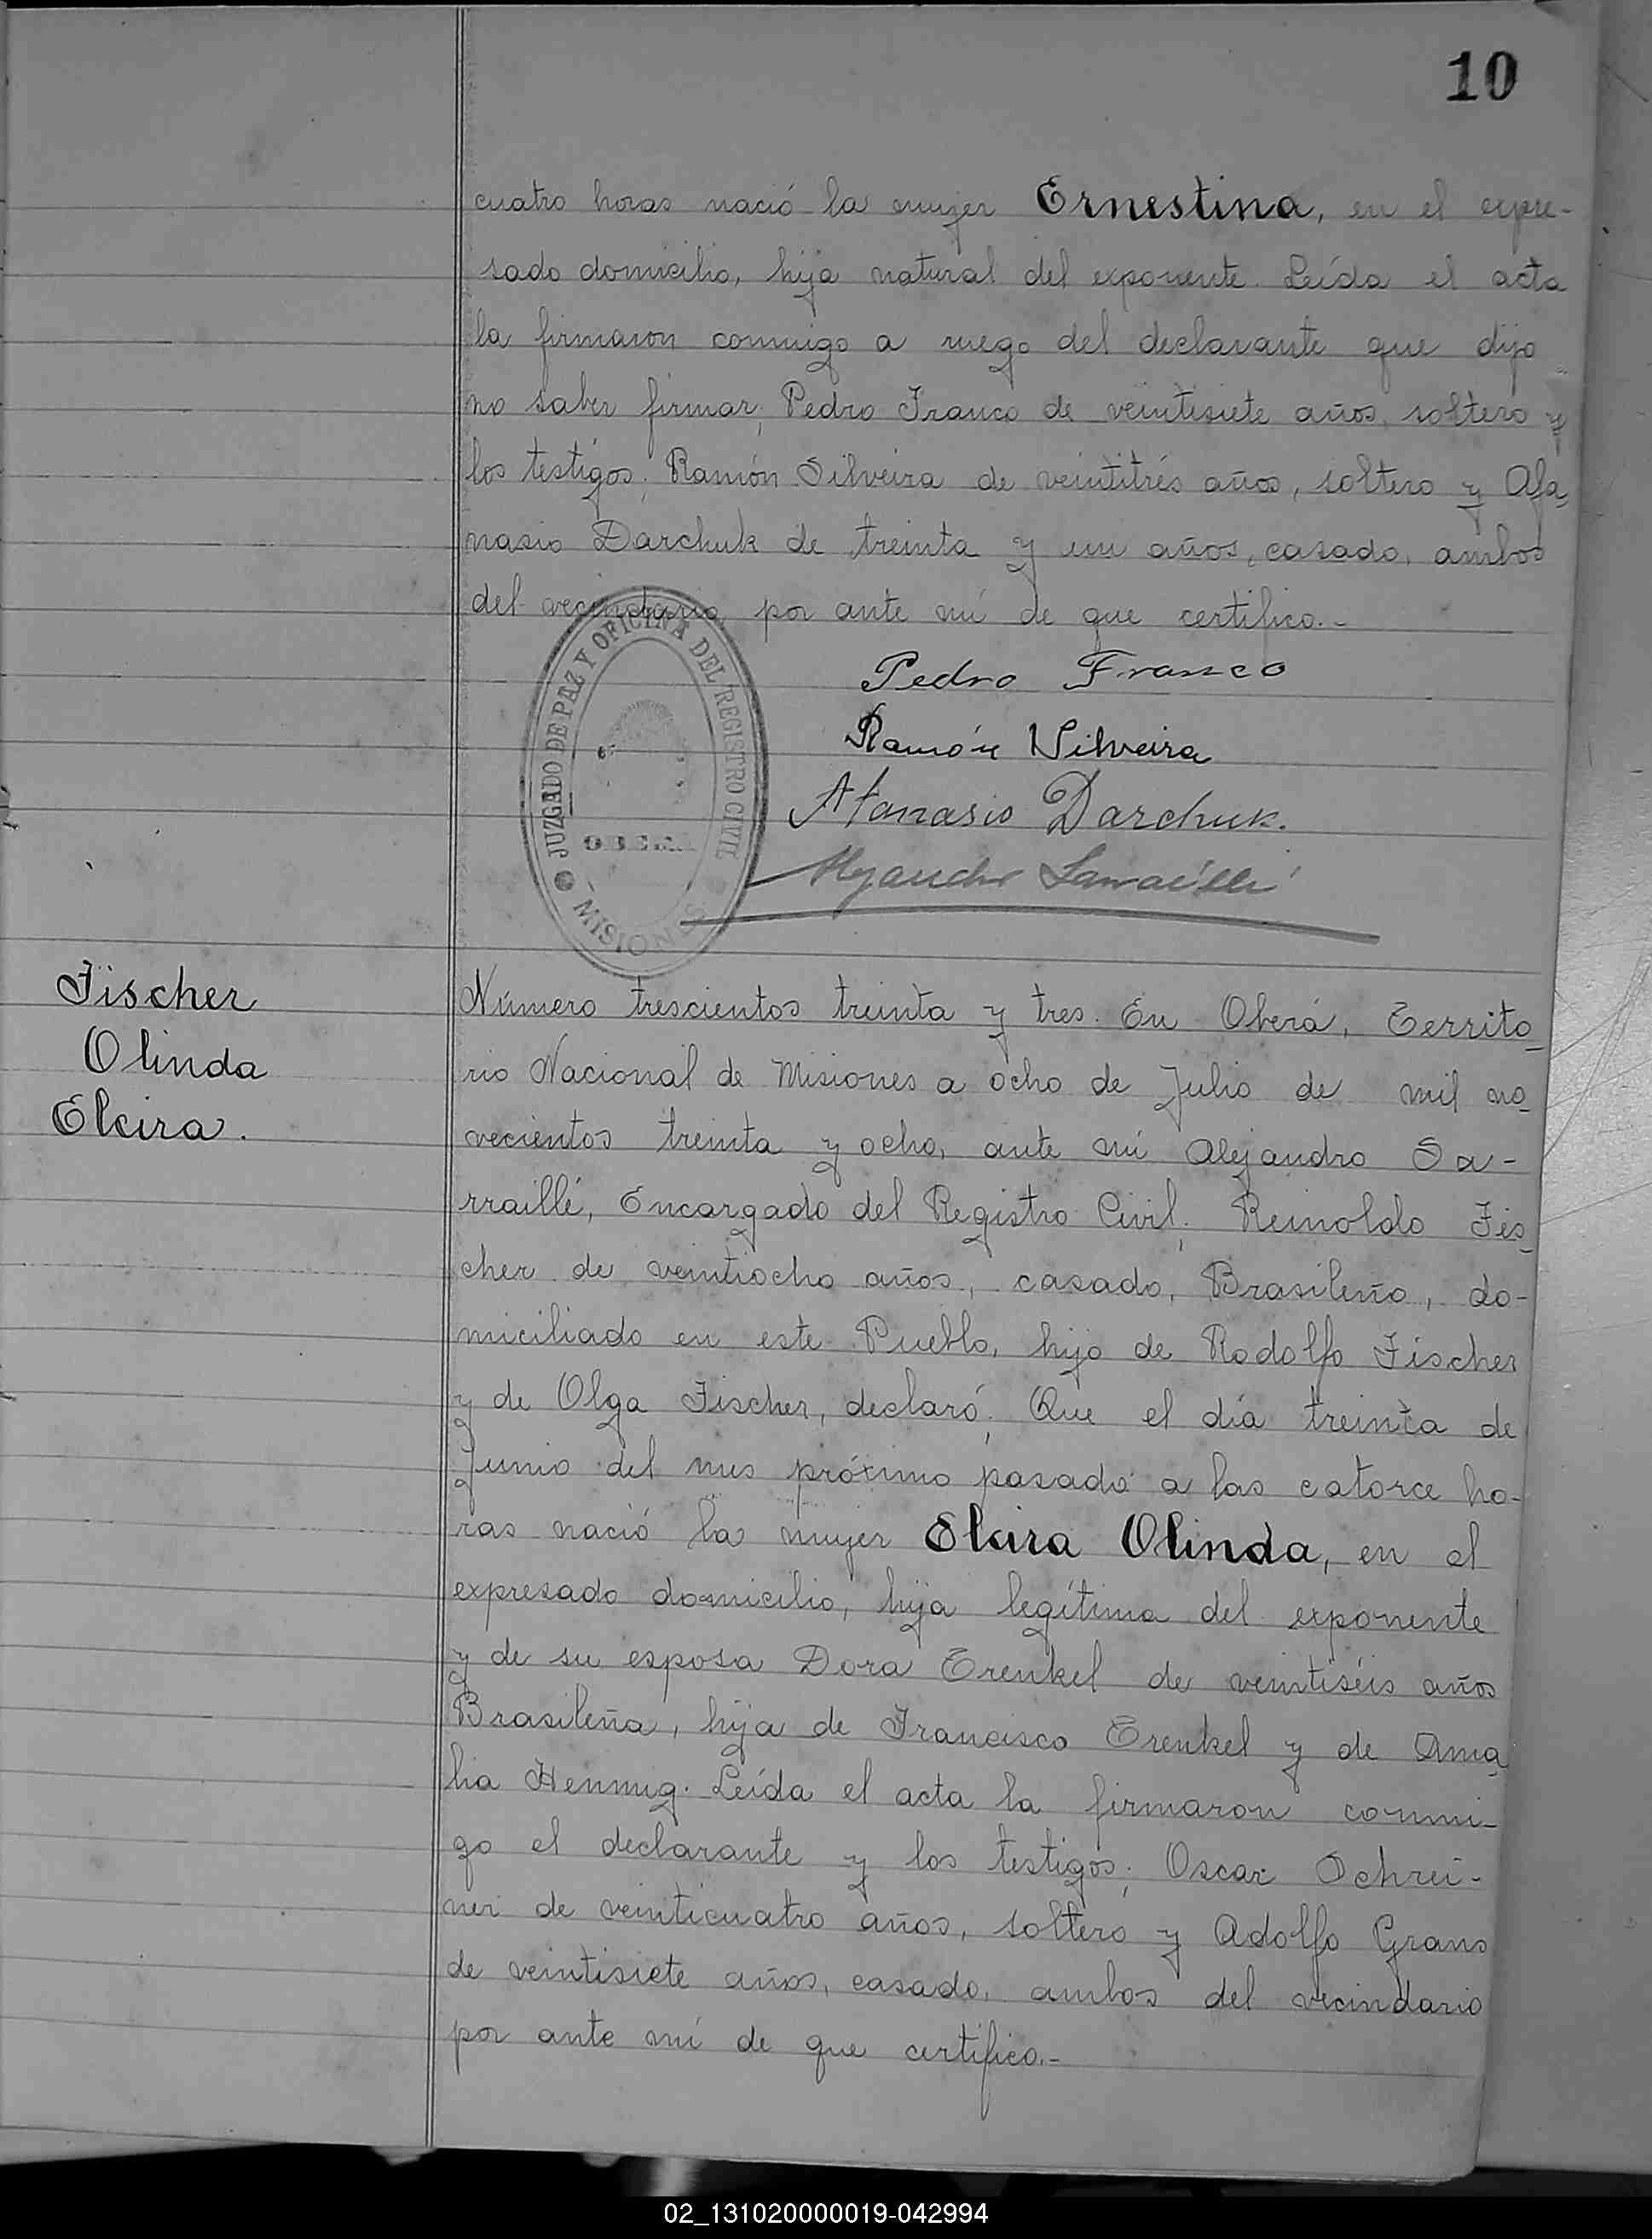 10
cuatro horas nació la mujer Ernestina, en el expre-
sado domicilio, hija natural del exponente. Leída el acta
la firmaron conmigo a ruego del declarante que dijo
no saber firmar; Pedro Franco de veintisiete años, soltero y
los testigos; Ramón Silveira de veintitrés años, soltero y Afa-
nasio Darchuk de treinta y un años, casado, ambos
del vecindario, por ante mí de que certifico.-
JUZGADO DE PAZ Y OFICINA DEL REGISTRO CIVIL
OBERA
MISIONES
Pedro Franco
Ramón Silveira
Afanasio Darchuk.
Fischer
Olinda
Elcira.
Número trescientos treinta y tres. En Oberá, Territo-
rio Nacional de Misiones a ocho de Julio de mil no-
vecientos treinta y ocho, ante mí Alejandro Sa-
rraillé, Encargado del Registro Civil; Reinoldo Fis-
cher de veintiocho años, casado, Brasileño, do-
miciliado en este Pueblo, hijo de Rodolfo Fischer
y de Olga Fischer, declaró; Que el día treinta de
Junio del mes próximo pasado a las catorce ho-
ras nació la mujer Elcira Olinda, en el
expresado domicilio, hija legítima del exponente
y de su esposa Dora Trenkel de veintiséis años
Brasileña, hija de Francisco Trenkel y de Ama-
lia Hennig. Leída el acta la firmaron conmi-
go el declarante y los testigos; Oscar Schrei-
ner de veinticuatro años, soltero y Adolfo Grans
de veintisiete años, casado, ambos del vecindario
por ante mí de que certifico.-
02_131020000019-042994